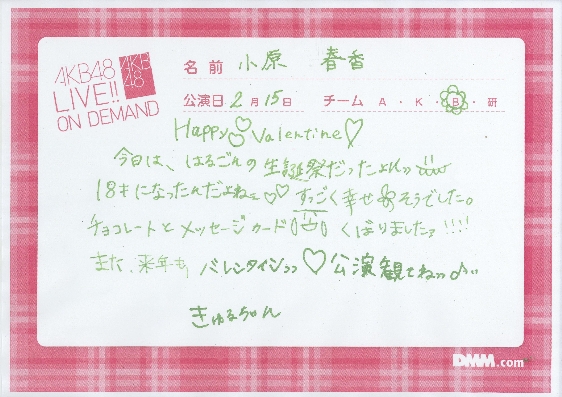 AKB48
LIVE!!
ON DEMAND
AKB
48
名前 小原 春香
公演日 2月15日 チーム A・K・B・研
Happy♡Valentine♡
今日は、はるごんの生誕祭だったよんっ
18才になったんだよねぇ♡♡ すっごく幸せそうでした。
チョコレートとメッセージカード くばりましたァ!!!!
また、来年も、バレンタインっっ♡公演観てねっっ♪
きゅるちゃん
DMM.com